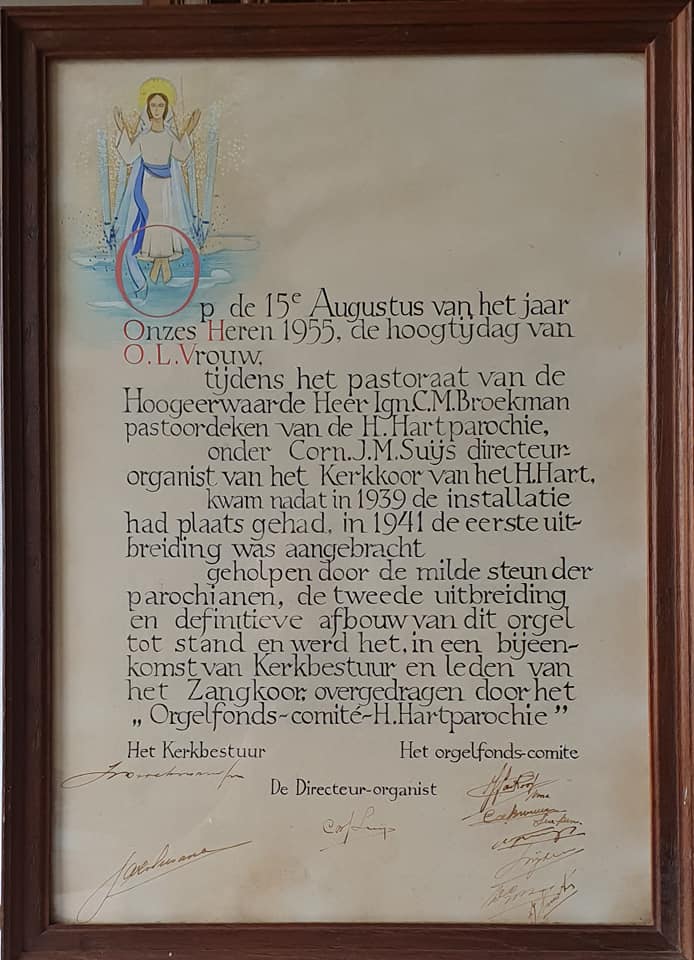 Op de 15e Augustus van het jaar
Onzes Heren 1955, de hoogtijdag van
O.L.Vrouw,
tijdens het pastoraat van de
Hoogeerwaarde Heer Ign.C.M.Broekman
pastoordeken van de H.Hartparochie,
onder Corn.J.M.Suijs directeur-
organist van het Kerkkoor van het H.Hart,
kwam nadat in 1939 de installatie
had plaats gehad, in 1941 de eerste uit-
breiding was aangebracht
geholpen door de milde steun der
parochianen, de tweede uitbreiding
en definitieve afbouw van dit orgel
tot stand en werd het, in een bijeen-
komst van Kerkbestuur en leden van
het Zangkoor, overgedragen door het
„Orgelfonds-comité-H.Hartparochie”
Het Kerkbestuur Het orgelfonds-comite
De Directeur-organist